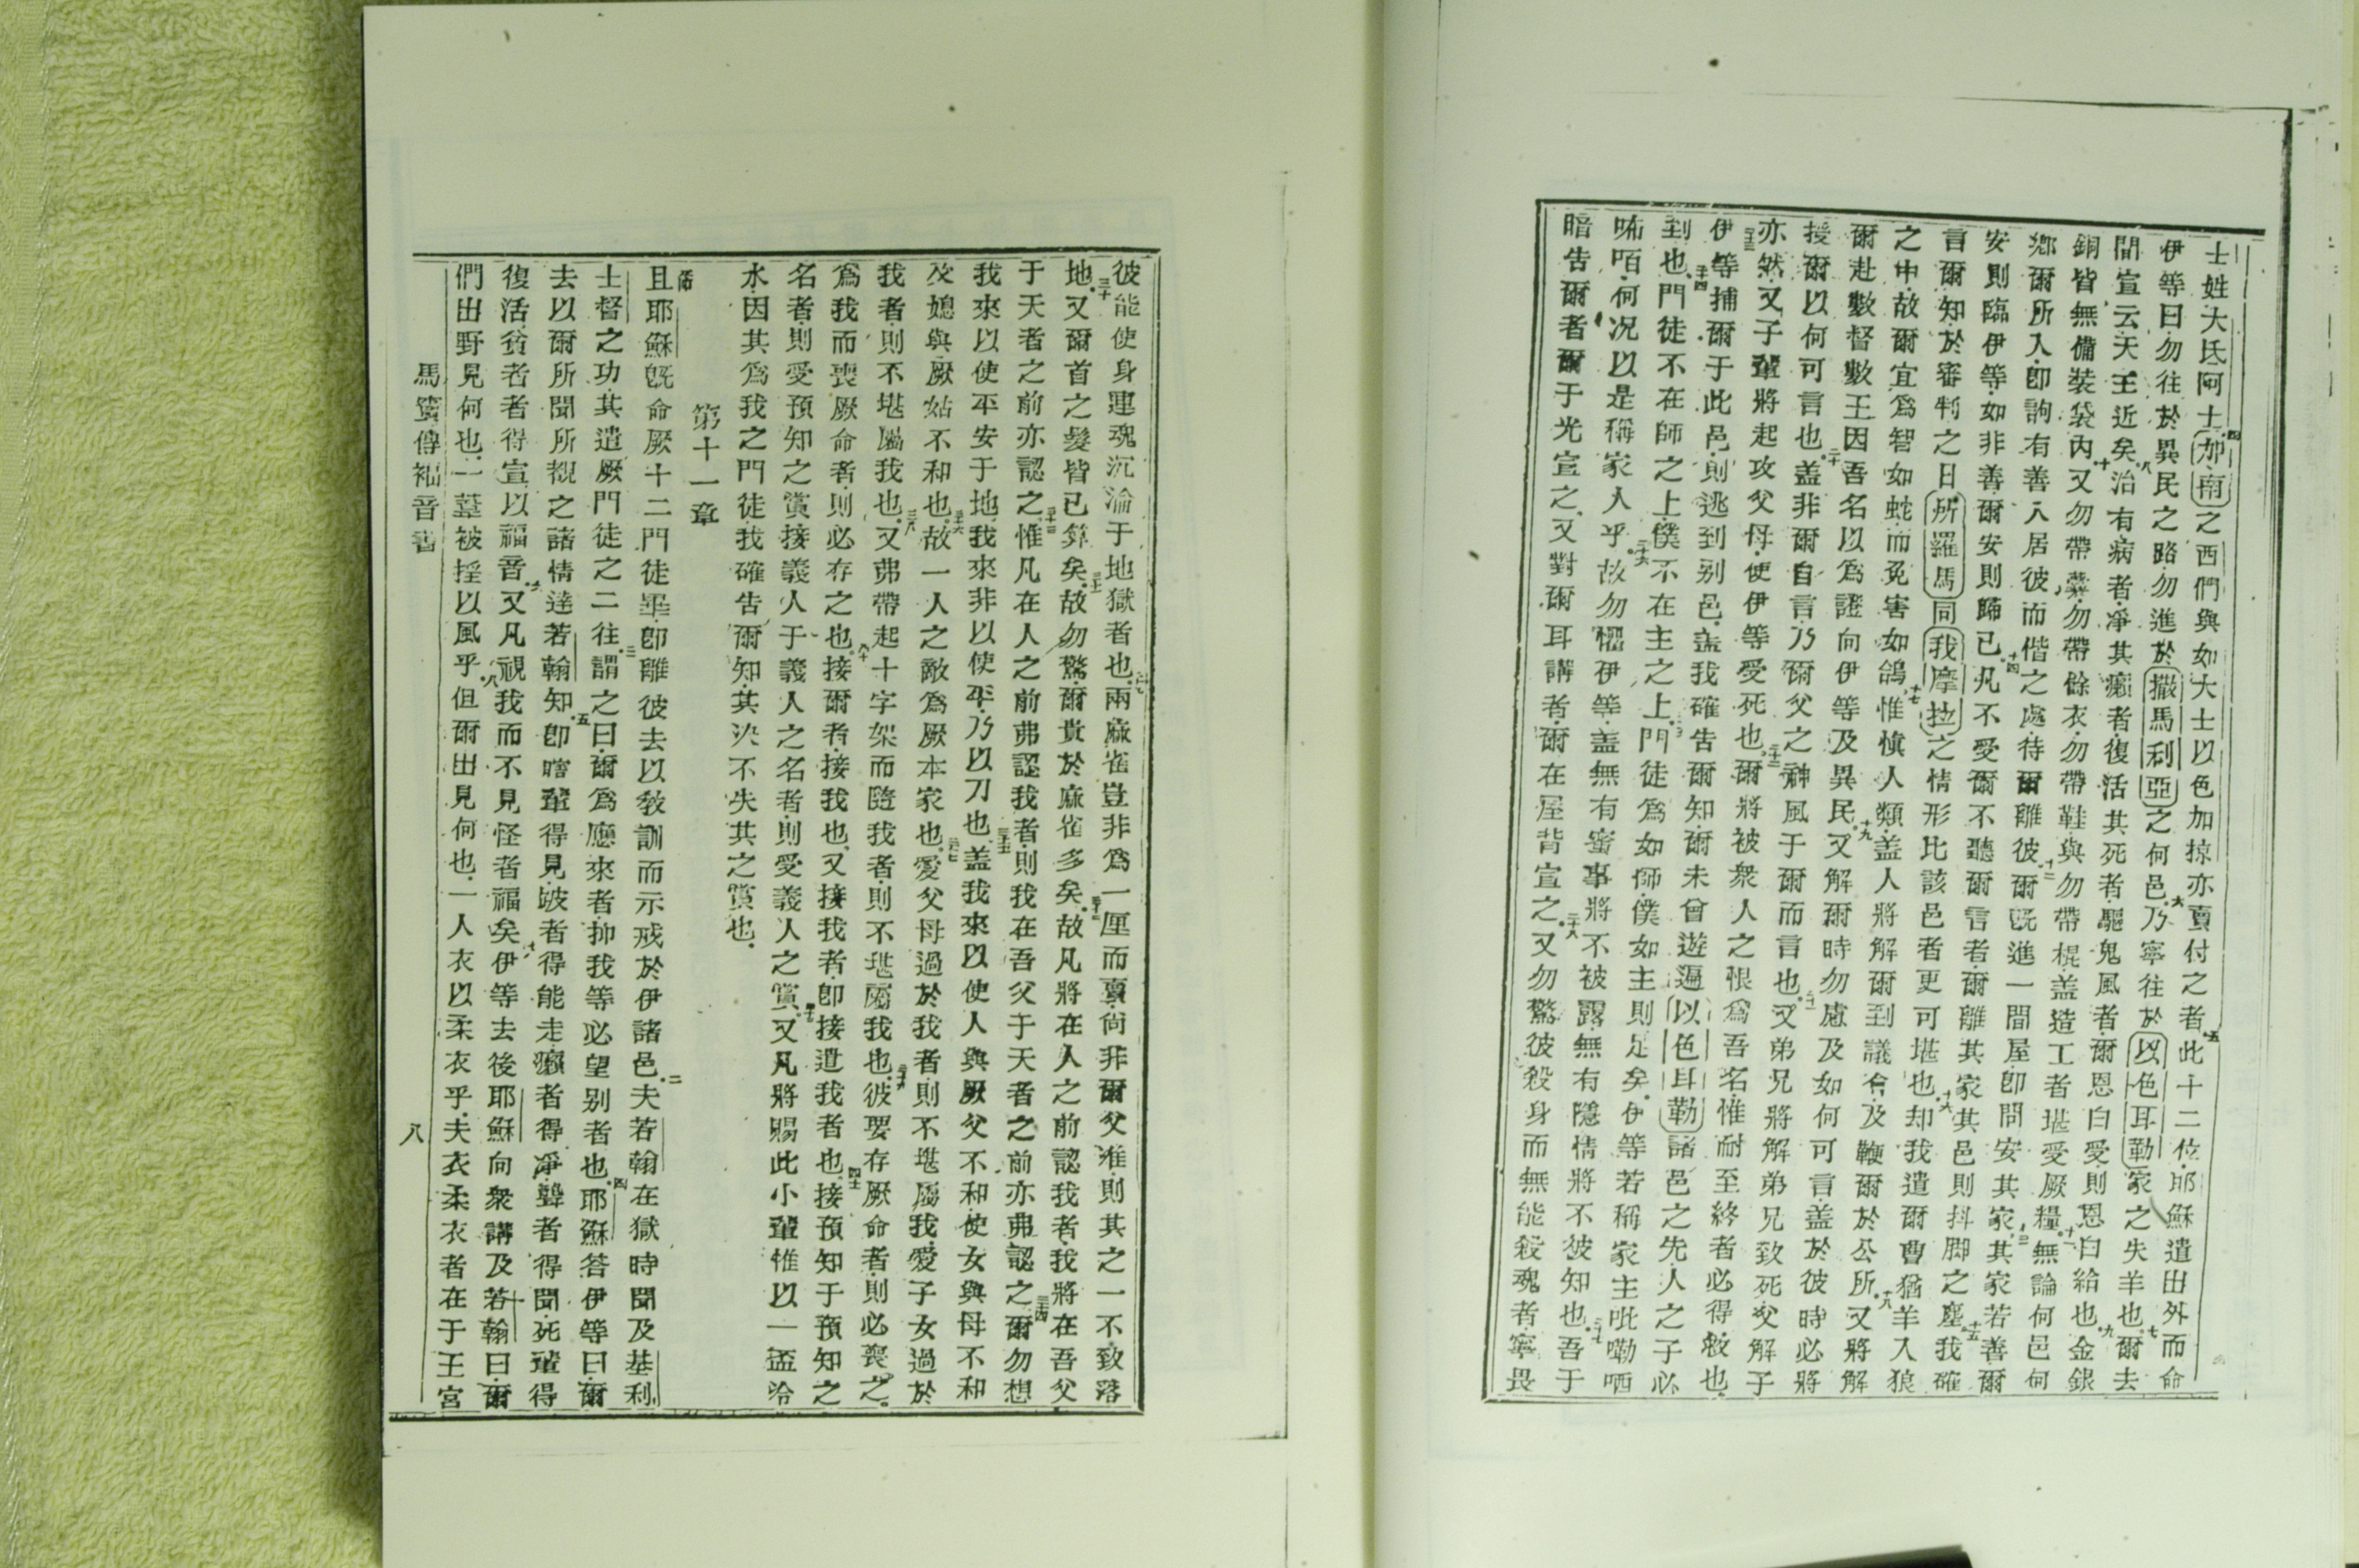 士姓大氐阿士加南之西們與如大士以色加掠亦賣付之者此十二位耶穌遣出外而命
伊等曰勿往於異民之路勿進於撒馬利亞之何邑乃寧往於以色耳勒家之失羊也爾去
間宣云天王近矣治有病者凈其癩者復活其死者驅鬼風者爾恩白受則恩白給也金銀
銅皆無備裝袋內又勿帶囊勿帶餘衣勿帶鞋與勿帶棍盖造工者堪受厥糧無論何邑何
鄉爾所入卽詢有善人居彼而偕之處待爾離彼爾旣進一間屋卽問安其家其家若善爾
安則臨伊等如非善爾安則歸已凡不受爾不聽爾言者爾離其家其邑則抖脚之塵我確
言爾知於審判之日所羅馬同我摩拉之情形比該邑者更可堪也却我遣爾曹猶羊入狼
之中故爾宜爲智如蛇而免害如鴿惟愼人類盖人將解爾到議會及鞭爾於公所又將解
爾赴數督數王因吾名以爲證向伊等及異民又解爾時勿慮及如何可言盖於彼時必將
授爾以何可言也盖非爾自言乃爾父之神風于爾而言也又弟兄將解弟兄致死父解子
亦然又子輩將起攻父母使伊等受死也爾將被衆人之恨爲吾名惟耐至終者必得救也
伊等捕爾于此邑則逃到别邑盖我確告爾知爾未曾遊遍以色耳勒諸邑之先人之子必
到也門徒不在師之上僕不在主之上門徒爲如師僕如主則足矣伊等若稱家主吡嘞哂
咘咟何况以是稱家人乎故勿懼伊等盖無有密事將不被露無有隱情將不彼知也吾于
暗告爾者爾于光宣之又對爾耳講者爾在屋背宣之又勿驚彼殺身而無能殺魂者寧畏
彼能使身連魂沉淪于地獄者也兩麻雀豈非爲一厘而賣尙非爾父准則其之一不致落
地又爾首之髮皆已筭矣故勿驚爾貴於麻雀多矣故凡將在人之前認我者我將在吾父
于天者之前亦認之惟凡在人之前弗認我者則我在吾父于天者之前亦弗認之爾勿想
我來以使平安于地我來非以使平乃以刀也盖我來以使人與厥父不和使女與母不和
及媳與厥姑不和也故一人之敵爲厥本家也愛父母過於我者則不堪屬我愛子女過於
我者則不堪屬我也又弗帶起十字架而隨我者則不堪屬我也彼要存厥命者則必喪之
爲我而喪厥命者則必存之也接爾者接我也又接我者卽接遣我者也接預知于預知之
名者則受預知之賞接義人于義人之名者則受義人之賞又凡將賜此小輩惟以一盃冷
水因其爲我之門徒我確告爾知其決不失其之賞也
第十一章
且耶穌旣命厥十二門徒畢卽離彼去以敎訓而示戒於伊諸邑夫若翰在獄時聞及基利
士督之功其遣厥門徒之二往謂之曰爾爲應來者抑我等必望别者也耶穌答伊等曰爾
去以爾所聞所視之諸情達若翰知卽瞎輩得見跛者得能走癩者得凈聾者得聞死輩得
復活貧者者得宣以福音又凡視我而不見怪者福矣伊等去後耶穌向衆講及若翰曰爾
們出野見何也一葦被搖以風乎但爾出見何也一人衣以柔衣乎夫衣柔衣者在于王宮
馬竇傳福音書 八